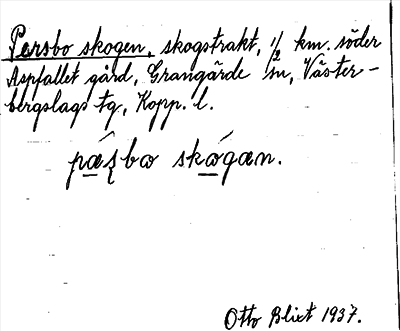 Persbo skogen, skogstrakt, 1/2 km. söder
Aspfallet gård, Grangärde sn, Väster-
bergslags tg, Kopp. l.
skógan.
Otto Blixt 1937.